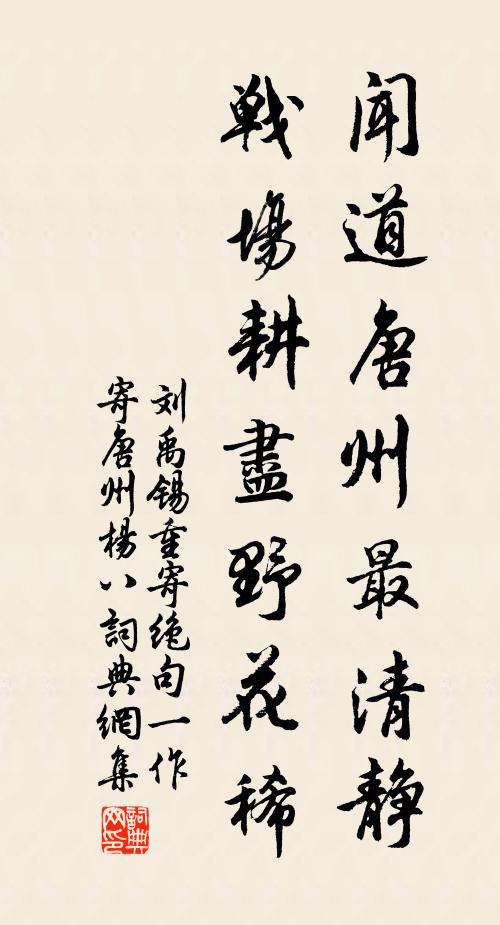 闻道唐州最清静
戦場耕盡野花稀
刘禹锡重寄绝句一作
寄唐州楊八詞典網集
詞典网印